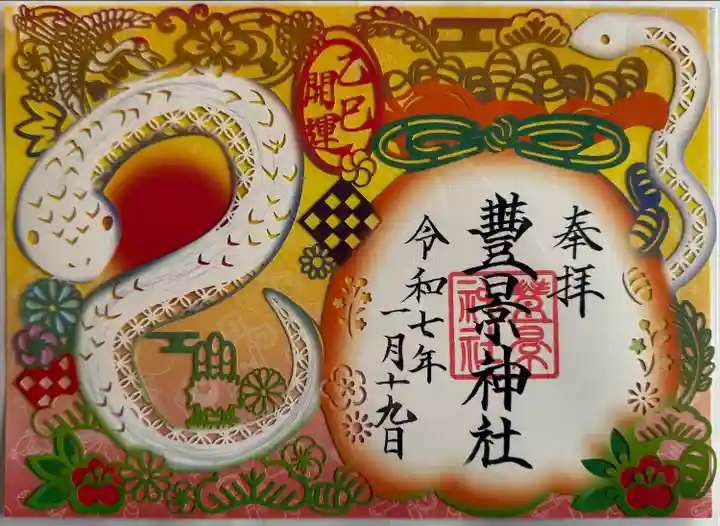 乙巳
開運
奉拝
豊景神社
豊景
神社
令和七年
一月十九日